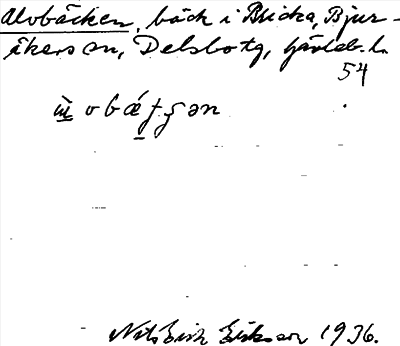 Alvbäcken, bäck i Bricka, Bjur-
åkers sn, Delsbo tg, Gävleb. l.
54
Nils Erik Eriksson 1936.